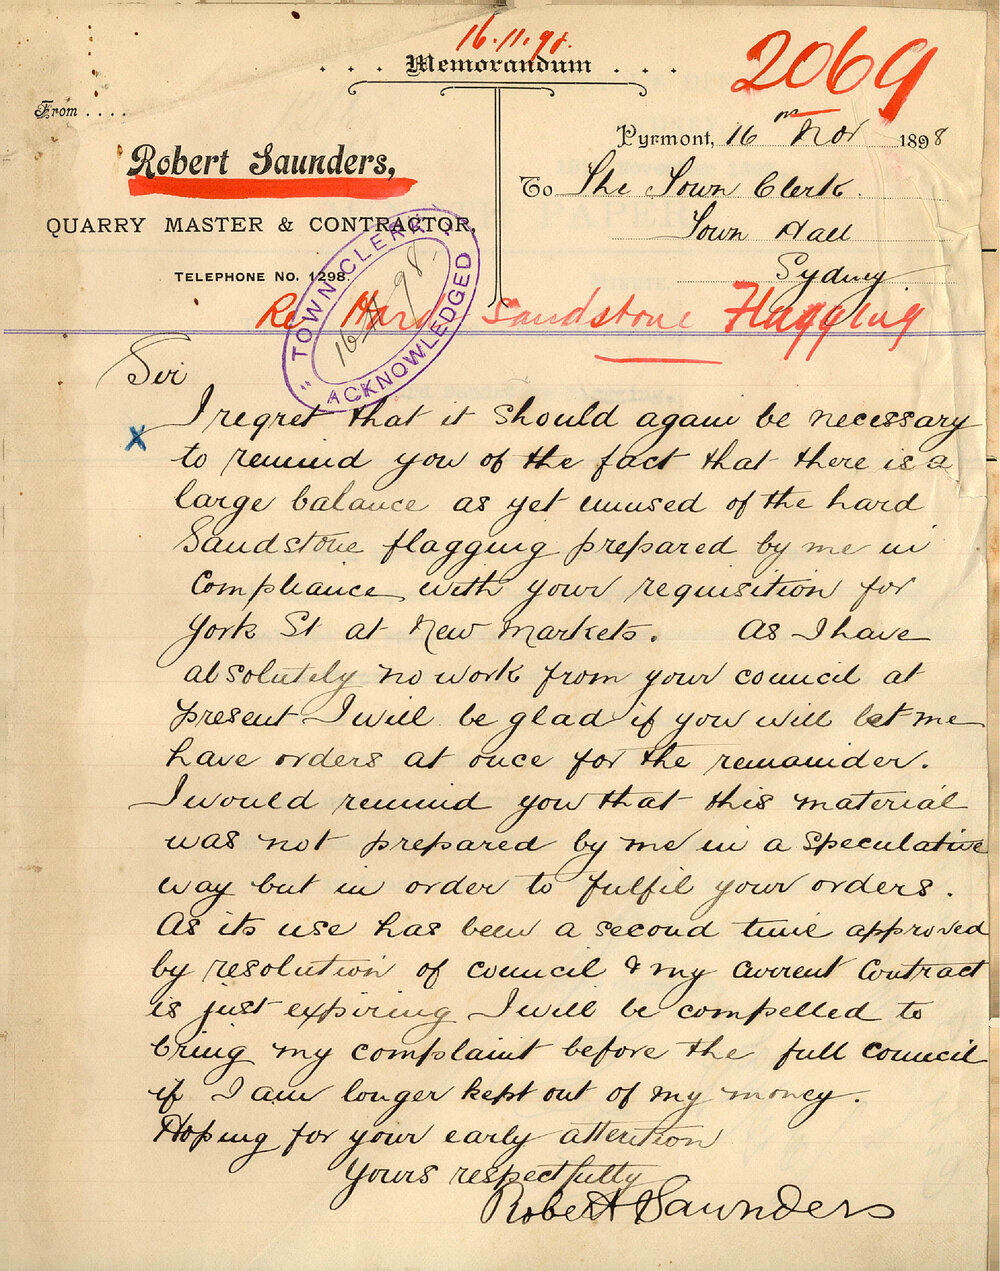 16.11.98.
2069
Memorandum
From ....
Pyrmont, 16 Nov 1898
Robert Saunders,
To The Town Clerk.
QUARRY MASTER & CONTRACTOR,
Town Hall
TELEPHONE No. 1298.
Sydney
"TOWN CLERK"
ACKNOWLEDGED
Re Hard Sandstone Flagging
Sir
x
I regret that it should again be necessary
to remind you of the fact that there is a
large balance as yet unused of the hard
Sandstone flagging prepared by me in
compliance with your requisition for
York St at New Markets. As I have
absolutely no work from your council at
present I will be glad if you will let me
have orders at once for the remainder.
I would remind you that this material
was not prepared by me in a speculative
way but in order to fulfil your orders.
As its use has been a second time approved
by resolution of council & my current Contract
is just expiring I will be compelled to
bring my complaint before the full council
if I am longer kept out of my money.
Hoping for your early attention
Yours respectfully
Robert Saunders